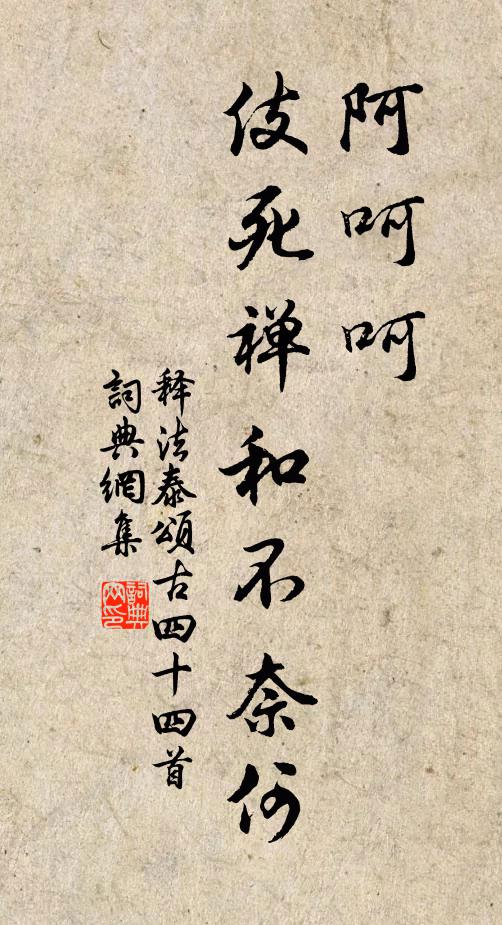 阿呵呵
伎死禅和不奈何
释法泰颂古四十四首
詞典網集
詞典